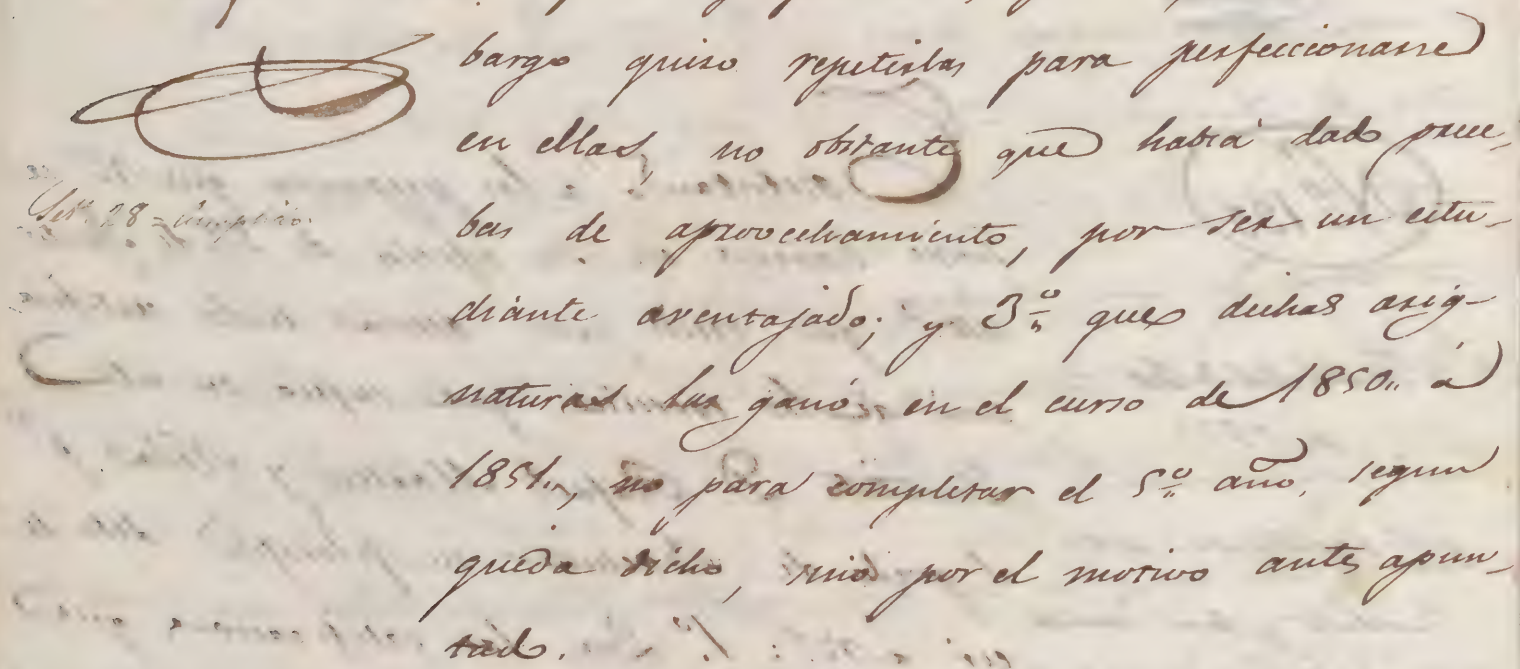 bargo quiso repetirlas para perfeccionarse
en ellas, no obstante que habia dado prue-
bas de aprovechamiento, por ser un estu-
diante aventajado; y 3.º que dichas asig-
naturas las ganó en el curso de 1850 á
1851, no para completar el 5.º año, segun
queda dicho, sino por el motivo antes apun-
tado.
28